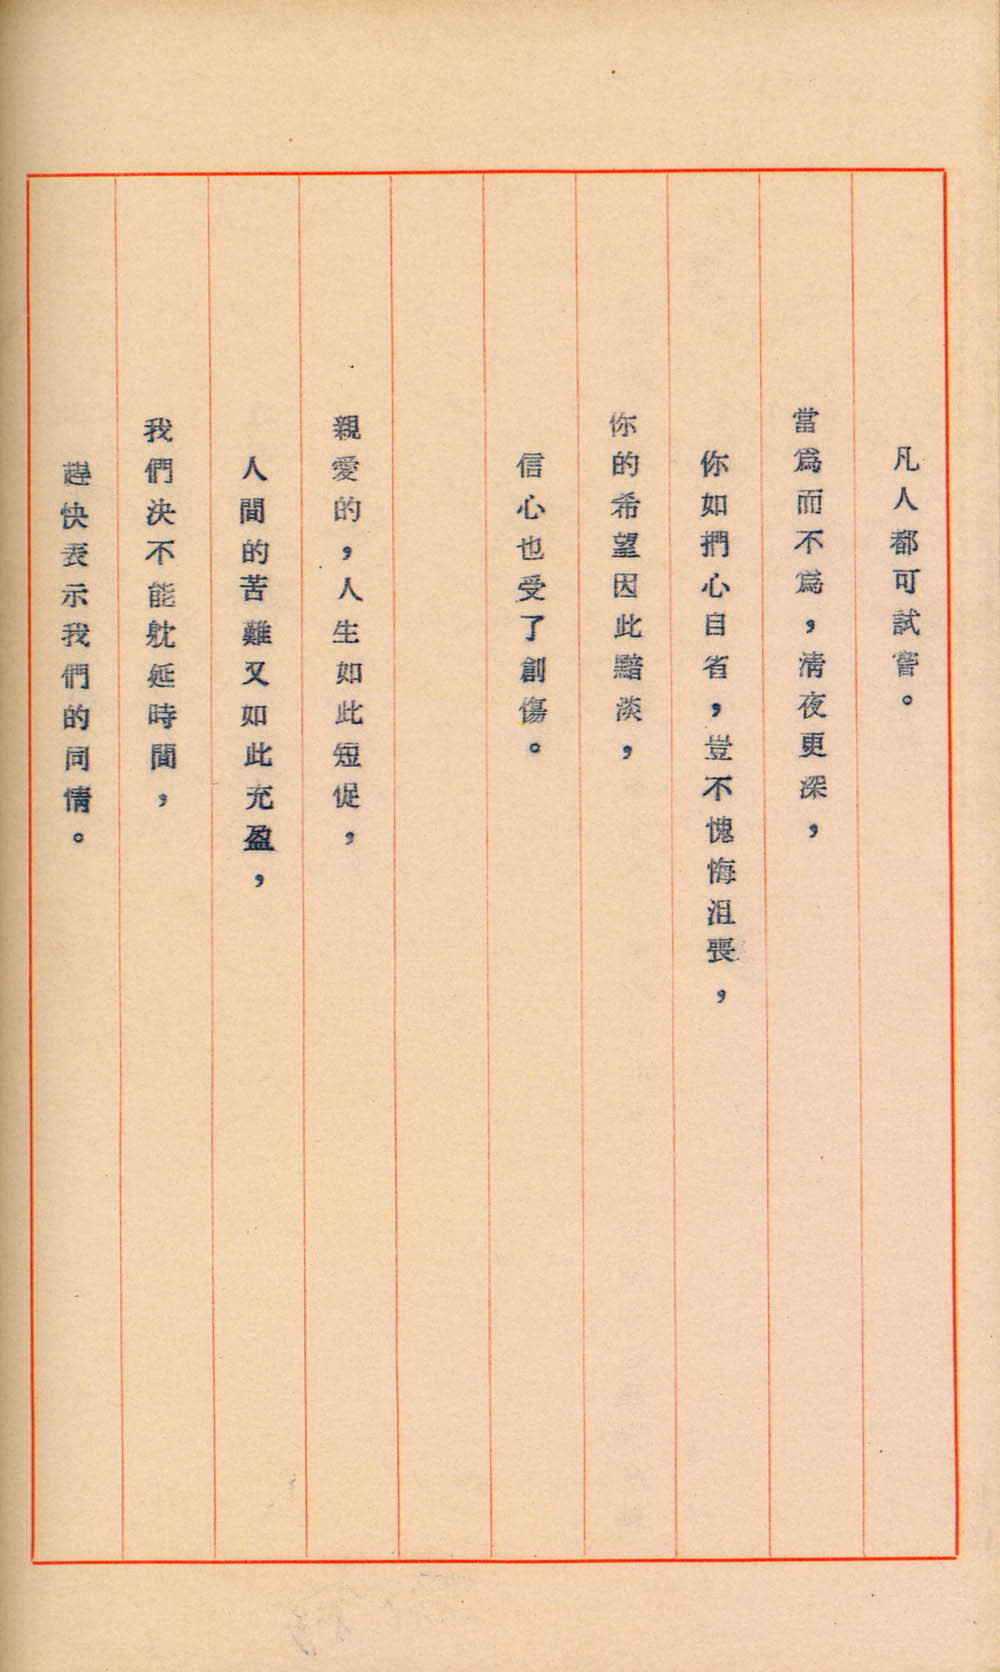 凡人都可試嘗。
當爲而不爲，清夜更深，
你如捫心自省，豈不愧悔沮喪，
你的希望因此黯淡，
信心也受了創傷。
親愛的，人生如此短促，
人間的苦難又如此充盈，
我們決不能躭延時間，
趕快表示我們的同情。